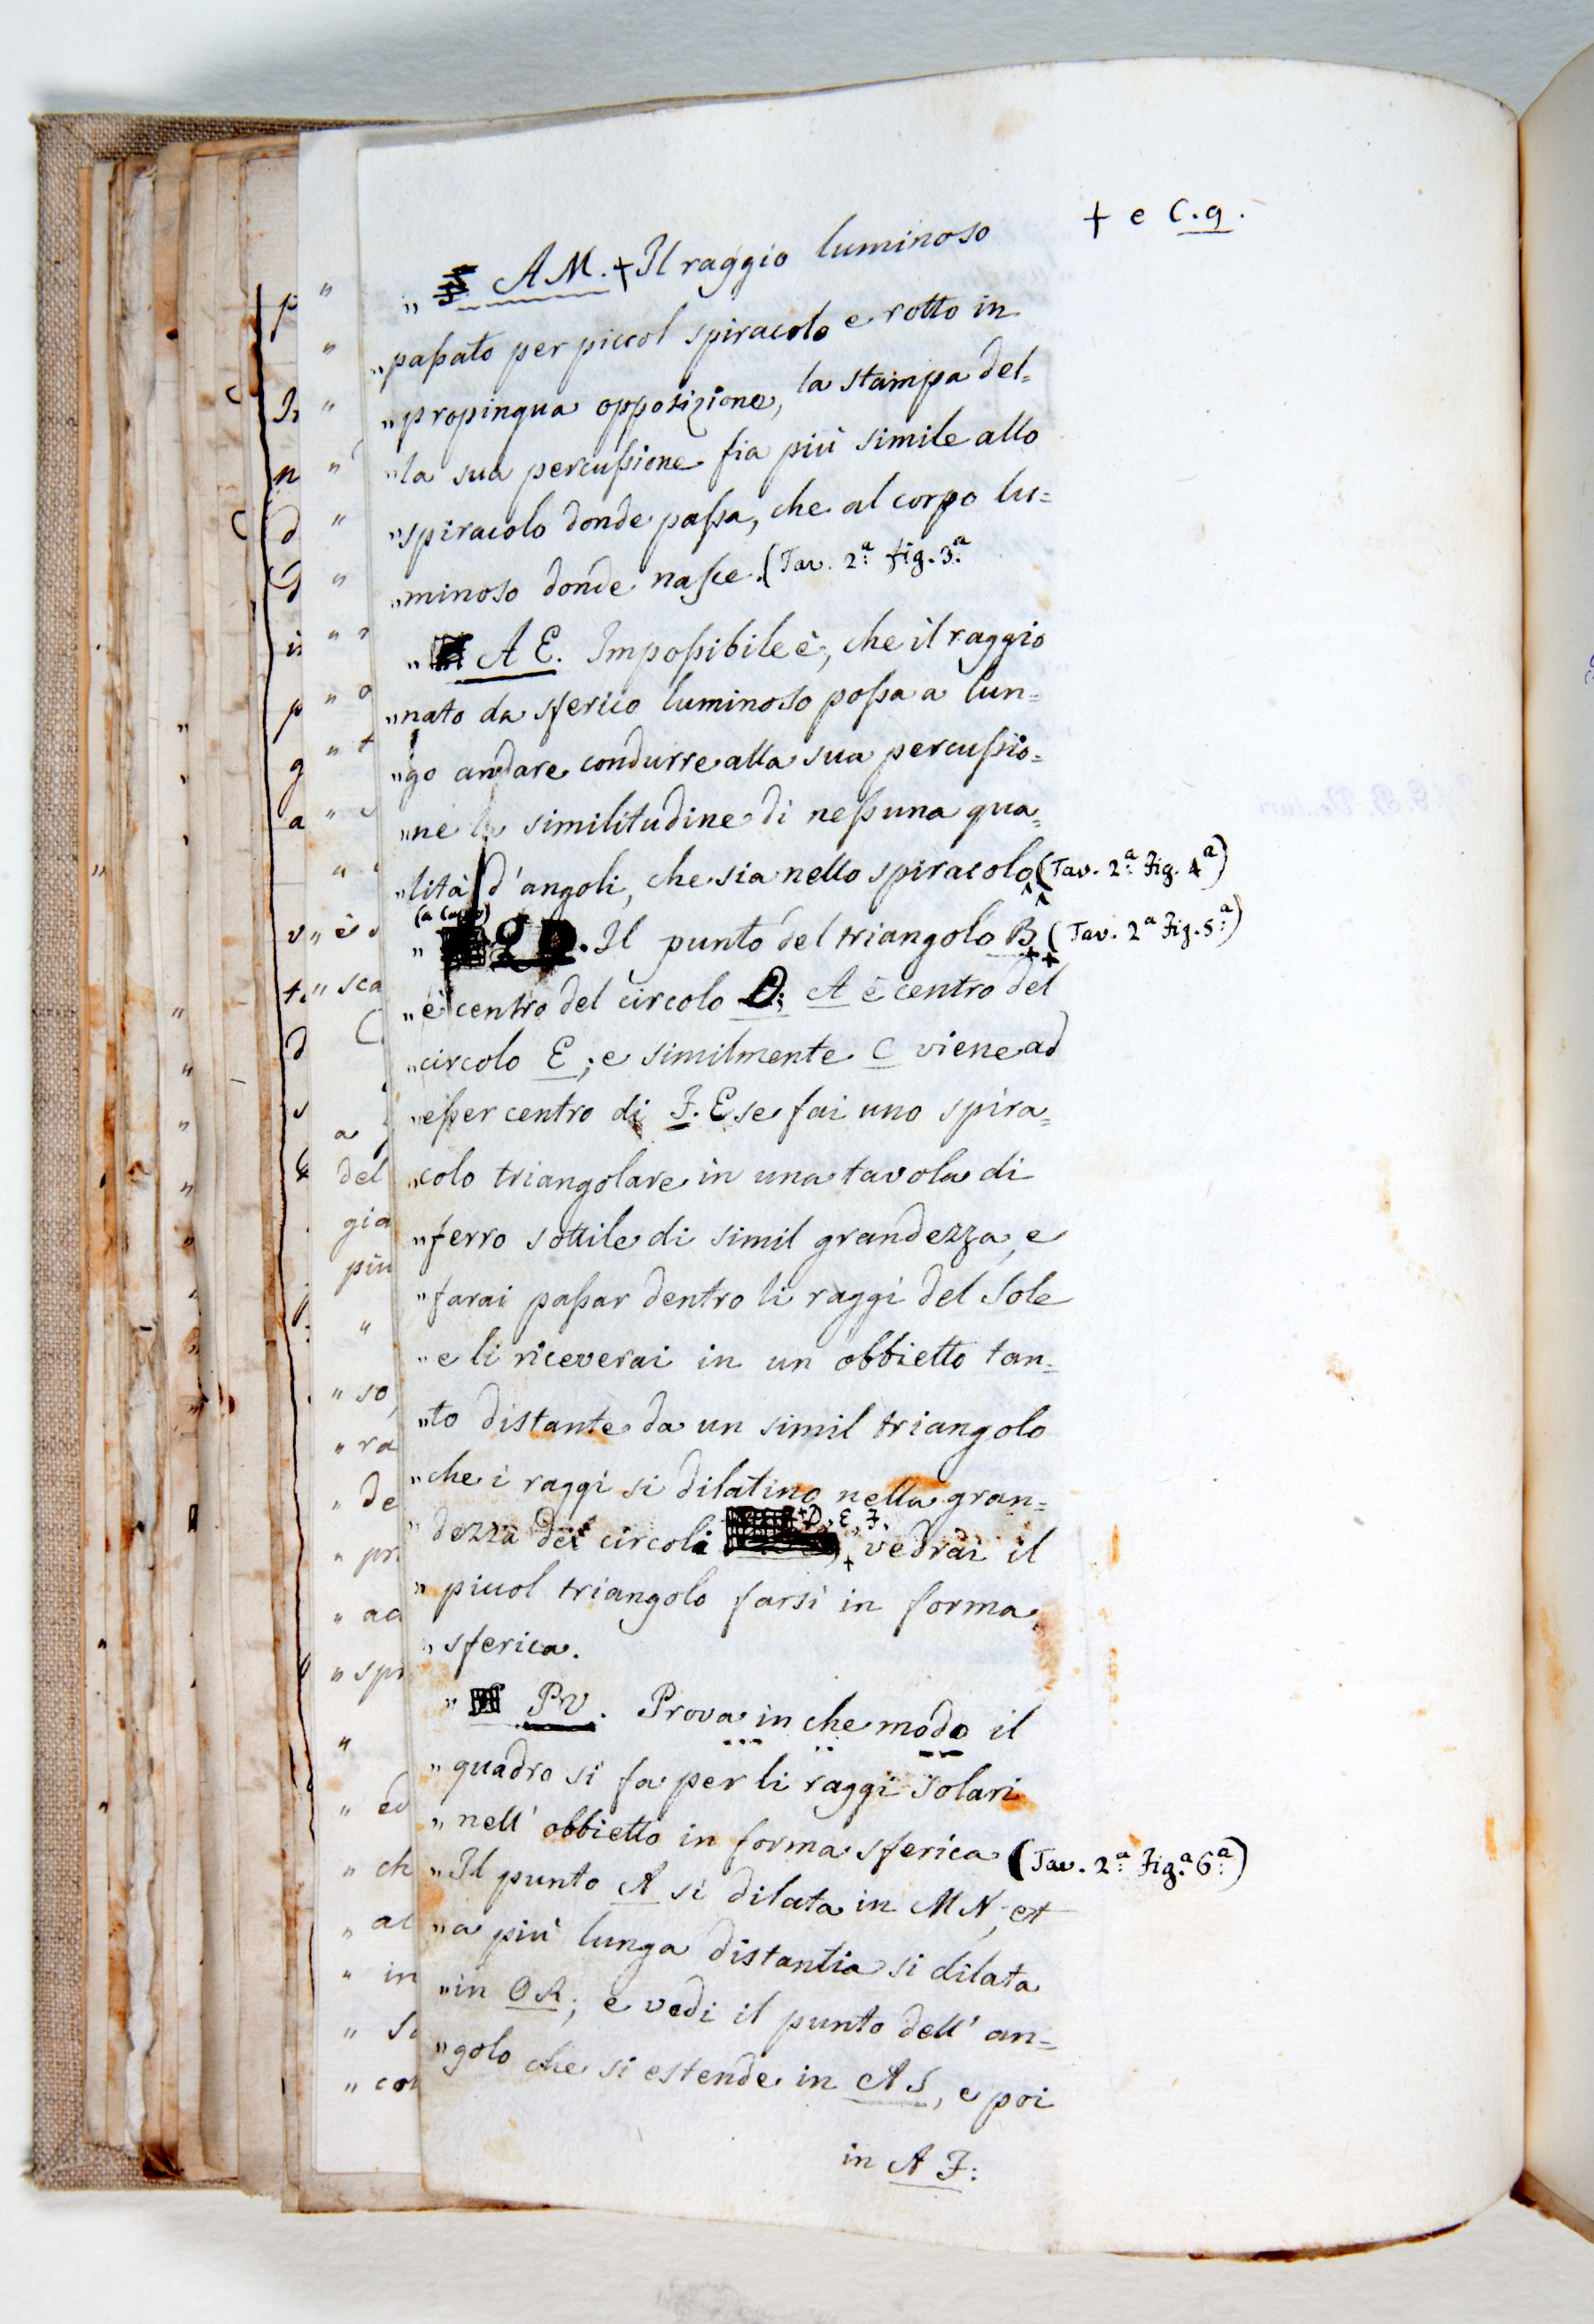 + e C.9.
„ A M. + Il raggio luminoso
„ paſsato per piccol spiracolo e rotto in
„ propinqua opposizione, la stampa del=
„ la sua percuſsione fia più simile allo
„ spiracolo donde paſsa, che al corpo lu=
„ minoso donde naſce. (Tav. 2.ª fig. 3.ª
„ A E. Impoſsibile è, che il raggio
„ nato da sferico luminoso poſsa a lun=
„ go andare condurre alla sua percuſsio=
„ ne la similitudine di neſsuna qua=
„ lità d'angoli, che sia nello spiracolo (Tav. 2.ª Fig. 4ª)
(a capo)
„ Il punto del triangolo B (Tav. 2ª Fig. 5.ª)
„ è centro del circolo D; A è centro del
„ circolo E; e similmente C viene ad
„ eſser centro di F. E se fai uno spira=
„ colo triangolare in una tavola di
„ ferro sottile di simil grandezza, e
„ farai paſsar dentro li raggi del Sole
„ e li riceverai in un obbietto tan=
„ to distante da un simil triangolo
„ che i raggi si dilatino nella gran=
+ D, E, F.
„ dezza dei circoli + vedrai il
„ piccol triangolo farsi in forma
„ sferica.
„ P V. Prova in che modo il
„ quadro si fa per li raggi Solari
„ nell' obbietto in forma sferica (Tav. 2.ª Fig.ª 6.ª)
„ Il punto A si dilata in M N, et
„ a più lunga distantia si dilata
„ in O R; e vedi il punto dell' an=
„ golo che si estende in A S, e poi
in A F: